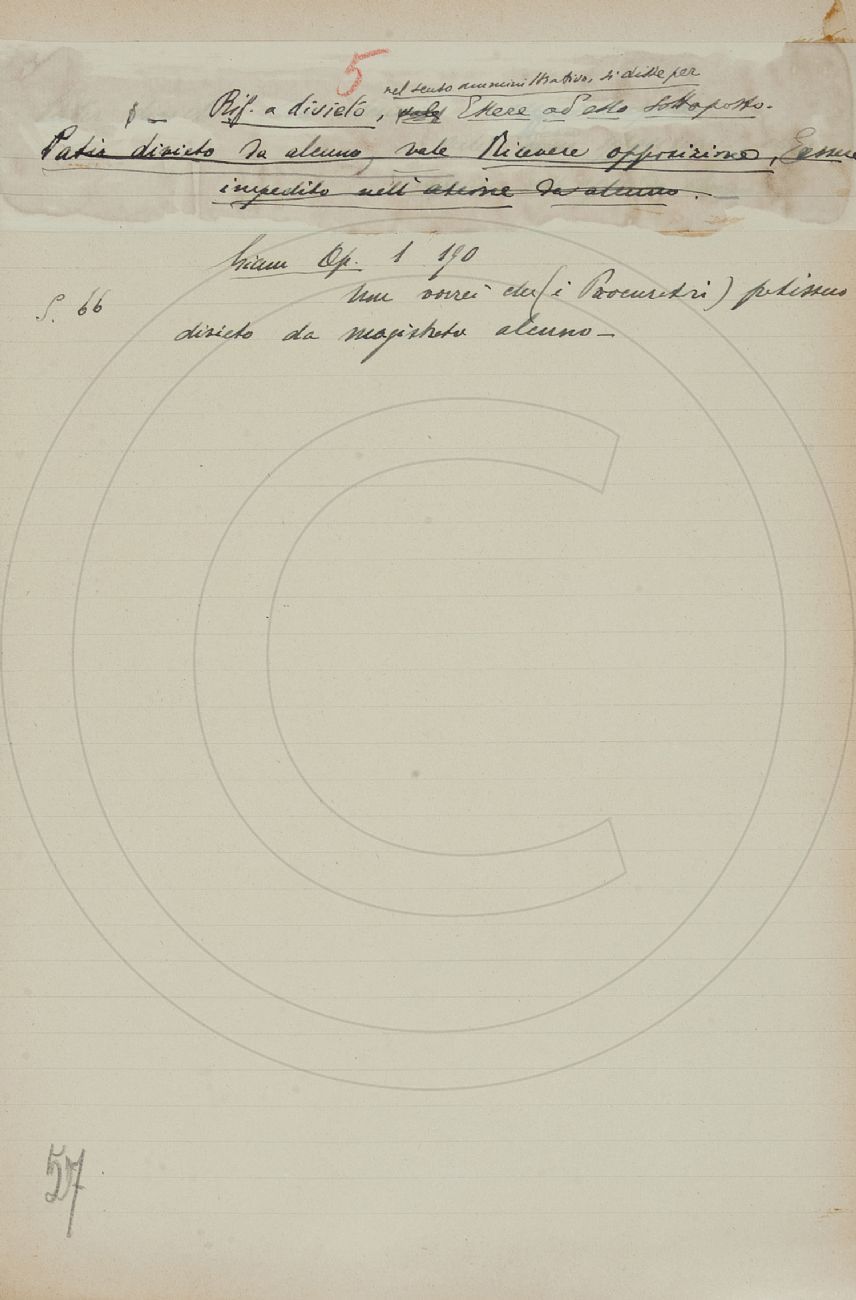 5
nel senso amministrativo, si disse per
§ — Rif. a divieto, vale Essere ad esso sottoposto.
Patir divieto da alcuno, vale Ricevere opposizione, Essere
impedito nell'azione da alcuno.
Giann. Op. 1 190
S. 66 Non vorrei che (i Procuratori) patissero
divieto da magistrato alcuno —
57